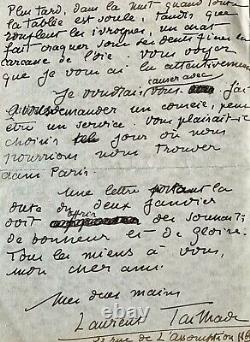 Plus tard, dans la nuit quand toute
la tablée est soule, tandis que
ronflent les ivrognes, un chat
fait craquer sous ses dents fines la
carcasse de l'oie. Vous voyez
que je vous ai lu attentivement
causer avec
Je voudrais vous
vous demander un conseil, peut
être un service. Vous plairait-il
choisir jour où nous
pourrions nous trouver
dans Paris.
Une lettre portant la
date du deux janvier
doit des souhaits
de bonheur et de gloire.
Tous les miens à vous,
mon cher ami.
Mes deux mains
Laurent Tailhade
rue de l'Assomption